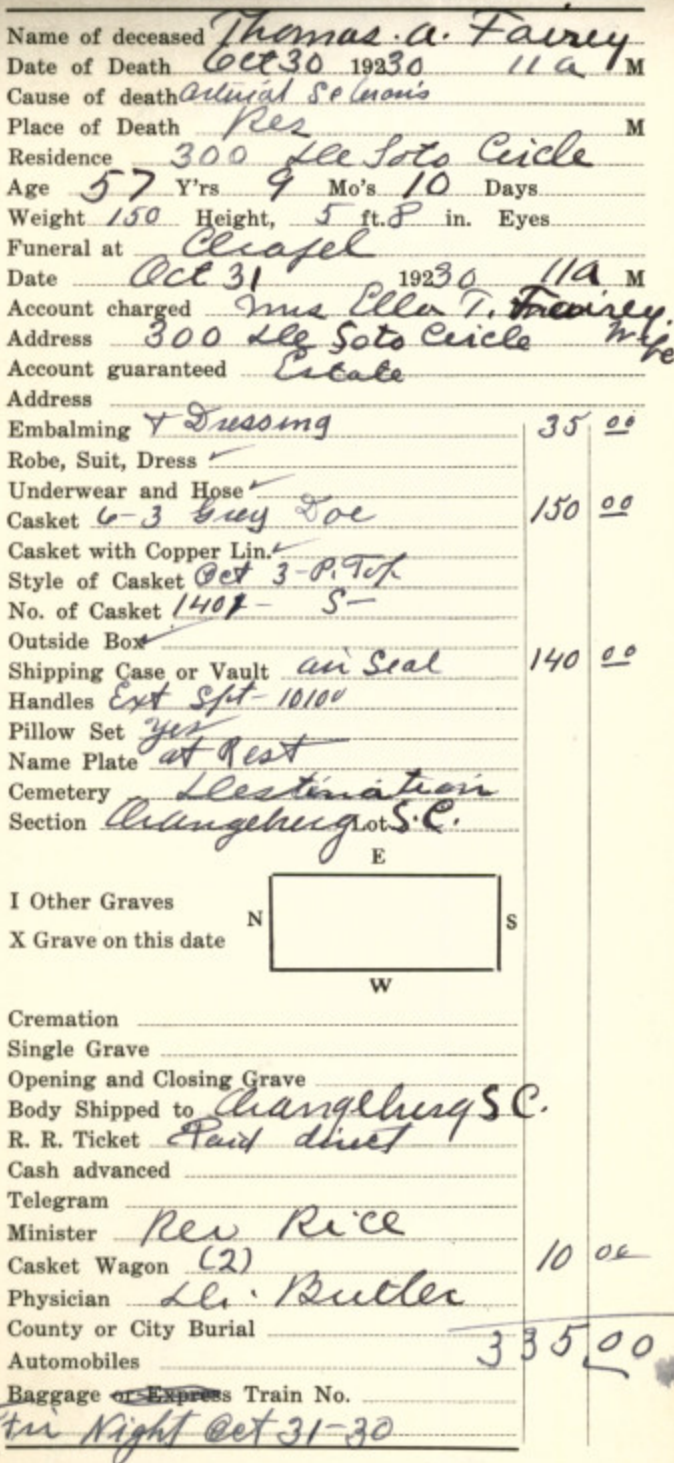 Name of deceased Thomas. A. Fairey
Date of Death Oct 30 19230 11 a M
Cause of death
Place of Death Res M
Residence 300 De Soto Circle
Age 57 Y'rs 9 Mo's 10 Days
Weight 150 Height, 5 ft. 8 in. Eyes
Funeral at Chapel
Date Oct 31 19230 11a M
Account charged Mrs Ella T. Fairey. Wife
Address 300 De Soto Circle
Account guaranteed Estate
Address
Embalming + Dressing 35 00
Robe, Suit, Dress ✓
Underwear and Hose ✓
Casket 6-3 Grey Doe 150 00
Casket with Copper Lin. ✓
Style of Casket Oct 3-P. Top
No. of Casket S-
Outside Box ✓
Shipping Case or Vault air Seal 140 00
Handles Ext
Pillow Set yes
Name Plate at Rest
Cemetery Destination
Section Orangeburg Lot S.C.
E
I Other Graves
N S
X Grave on this date
W
Cremation
Single Grave
Opening and Closing Grave
Body Shipped to Orangeburg S C.
R. R. Ticket Paid direct
Cash advanced
Telegram
Minister Rev Rice
Casket Wagon (2) 10 00
Physician Dr. Butler
County or City Burial
335.00
Automobiles
Baggage or Express Train No.
Fri Night Oct 31-30